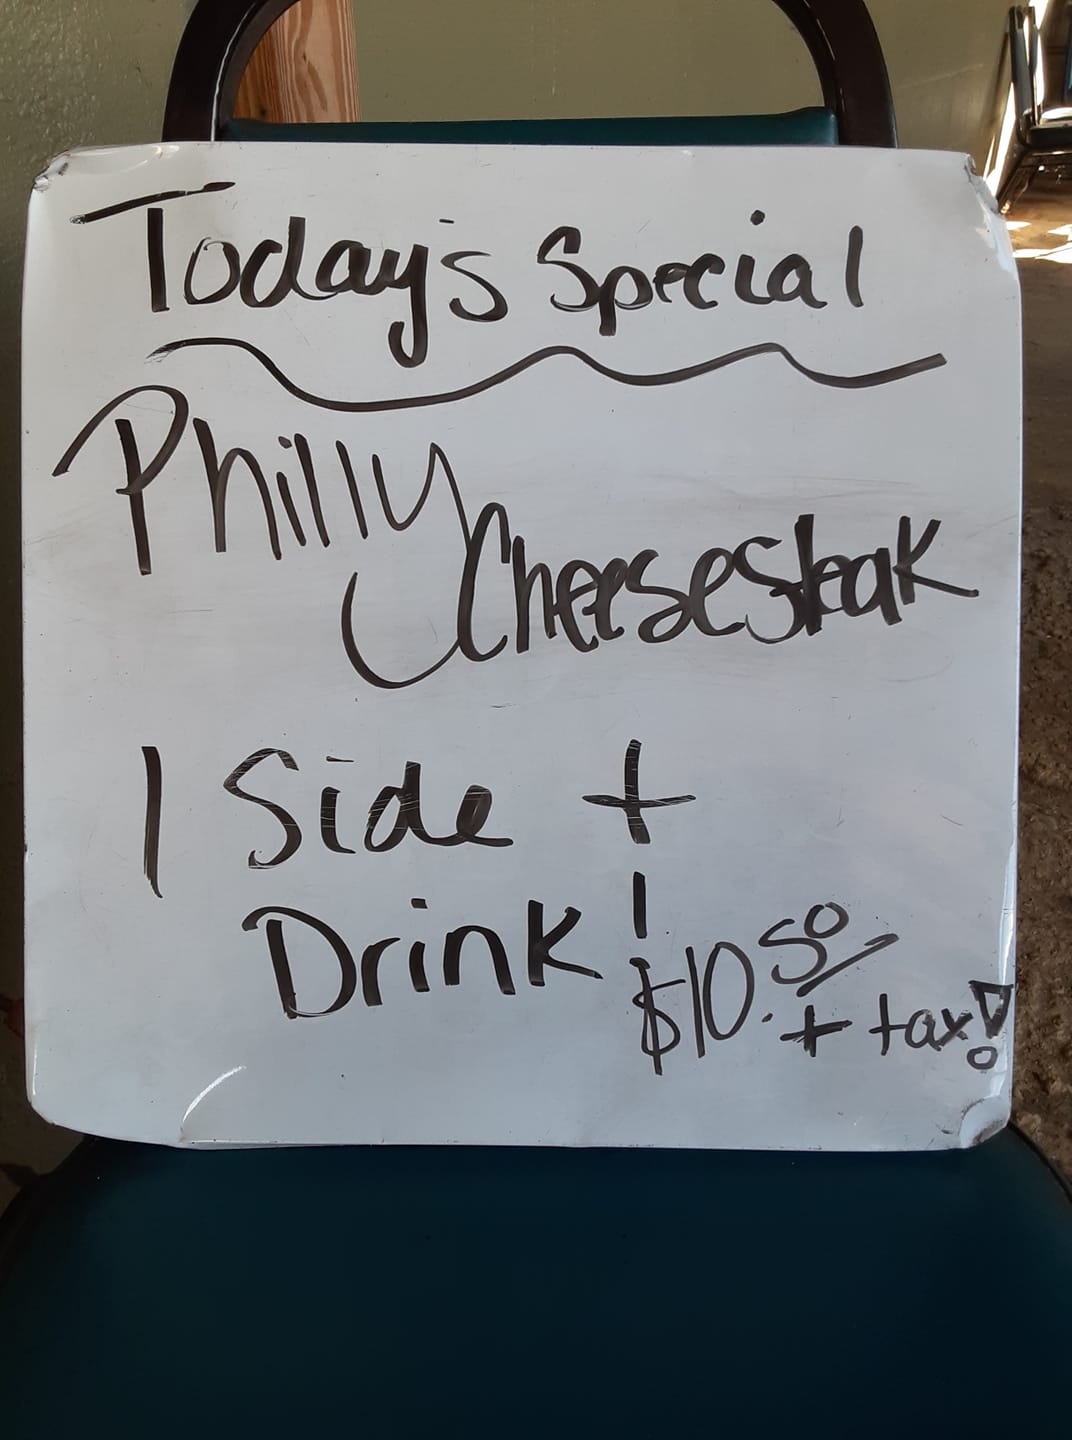 Today's Special
Philly
Cheesesteak
1 Side +
Drink!
$10.50
+ tax!